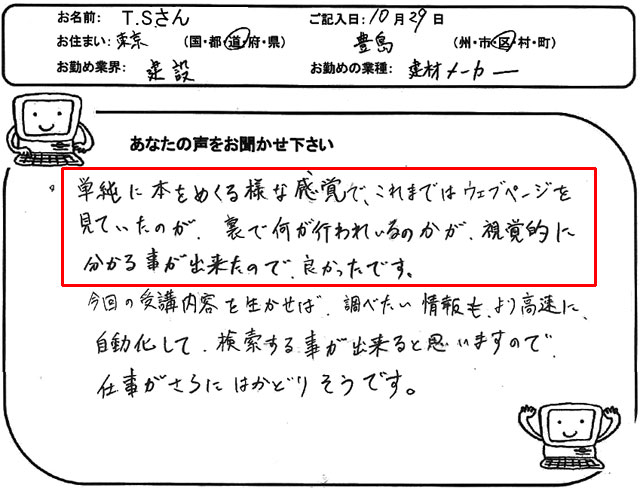 お名前: T.Sさん ご記入日: 10月29日
お住まい: 東京 (国・都・道・府・県) 豊島 (州・市・区・村・町)
お勤め業界: 建設 お勤めの業種: 建材メーカー
あなたの声をお聞かせ下さい
単純に本をめくる様な感覚で、これまではウェブページを
見ていたのが、裏で何が行われいるのかが、視覚的に
分かる事が出来たので、良かったです。
今回の受講内容を生かせば、調べたい情報も、より高速に、
自動化して、検索する事が出来ると思いますので、
仕事がさらにはかどりそうです。